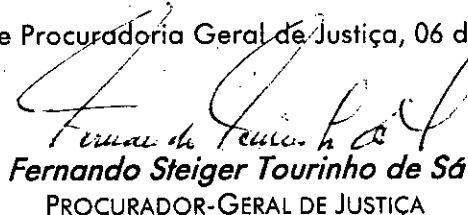 e Procuradoria Geral de Justiça, 06 d
Fernando Steiger Tourinho de Sá
PROCURADOR-GERAL DE JUSTIÇA